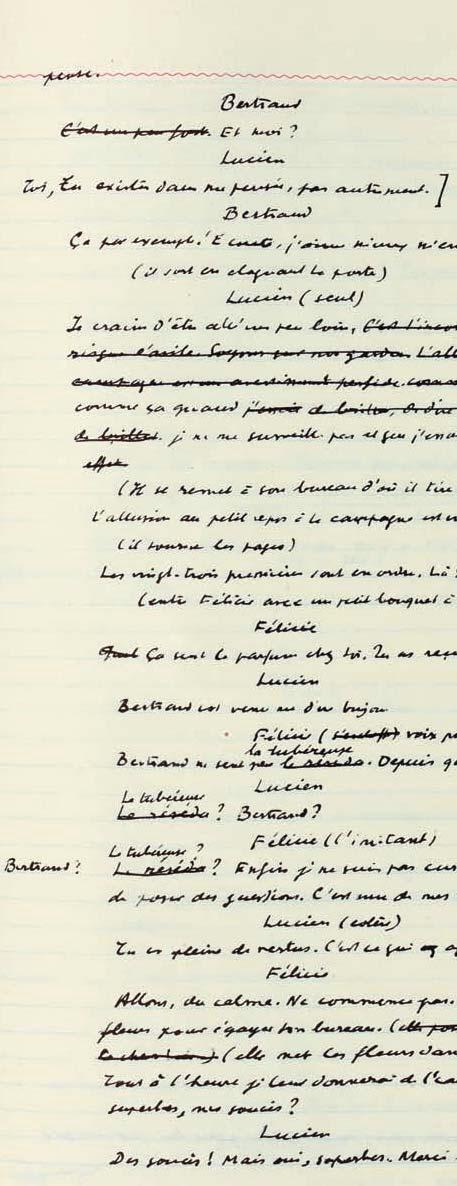 pense.
Bertrand
C'est un peu fort. Et moi ?
Lucien
Toi, tu existes dans ma pensée, pas autrement. ]
Bertrand
Ça par exemple ! Ecoute, j'aime mieux m'en
(il sort en claquant la porte)
Lucien (seul)
Je crains d'être allé un peu loin,
risque d'asile. Soyons sur nos gardes. L'all
est un avertissement perfide.
comme ça quand
je ne me surveille pas
effet
(Il se remet à son bureau d'où il tire
L'allusion au petit repos à la campagne est
(il tourne les pages)
Les vingt-trois premières sont en ordre. Là
(entre Félicie avec un petit bouquet à
Félicie
Ça sent le parfum chez toi. Tu as reçu
Lucien
Bertrand est venu me dire bonjour
Félicie ( ) voix
la tubéreuse
Bertrand ne sent pas le réséda. Depuis
Lucien
La tubéreuse
Le réséda ? Bertrand ?
Félicie (l'imitant)
La tubéreuse ?
Bertrand ? Le réséda ? Enfin je ne suis pas
de poser des questions. C'est une de mes
Lucien (colère)
Tu es pleine de vertus. C'est ce qui
Félicie
Allons, du calme. Ne commence pas.
fleurs pour égayer ton bureau. (elle
(elle met les fleurs dans
Tout à l'heure je leur donnerai de l'eau
superbes, mes soucis ?
Lucien
Des soucis ! Mais oui, superbes. Merci